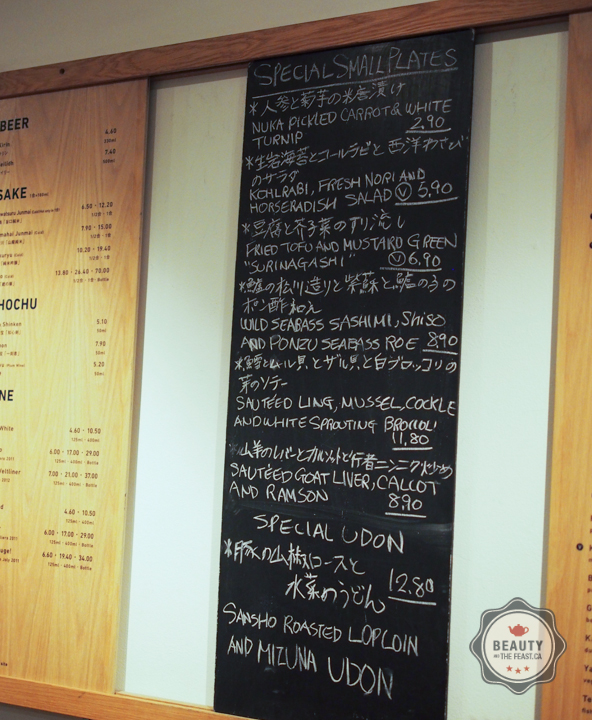 BEER
4.60
7.60
SAKE
6.50 - 12.20
7.90 - 15.00
10.20 - 19.40
13.80 - 26.40 - 70.00
HOCHU
5.10
50ml
7.90
50ml
5.20
50ml
NE
White
4.60 - 10.50
125ml - 400ml
6.00 - 17.00 - 29.00
125ml - 400ml - Bottle
Veltliner
7.00 - 21.00 - 37.00
125ml - 400ml - Bottle
4.60 - 10.50
125ml - 400ml
6.00 - 17.00 - 29.00
125ml - 400ml - Bottle
6.60 - 19.40 - 34.00
125ml - 400ml - Bottle
SPECIAL SMALL PLATES
*人参と菊芋の米唐漬け
NUKA PICKLED CARROT & WHITE
TURNIP 2.90
*生岩海苔とコールラビと西洋わさび
のサラダ
KOHLRABI, FRESH NORI AND
HORSERADISH SALAD V 5.90
*豆腐と芥子菜のすり流し
FRIED TOFU AND MUSTARD GREEN
"SURINAGASHI" V 6.90
*鱸の松川造りと紫蘇と鱸の子の
ポン酢和え
WILD SEABASS SASHIMI, Shiso
AND PONZU SEABASS ROE 8.90
*鱈とムール貝とザル貝と白ブロッコリの
葉のソテー
SAUTEED LING, MUSSEL, COCKLE
AND WHITE SPROUTING BROCCOLI
11.80
*山羊のレバーとカルソッツと行者ニンニク炒め
SAUTÉED GOAT LIVER, CALCOT
AND RAMSON 8.90
SPECIAL UDON
*豚の山椒ロースと
水菜のうどん 12.80
SANSHO ROASTED LOPLOIN
AND MIZUNA UDON
BEAUTY
AND THE FEAST.CA